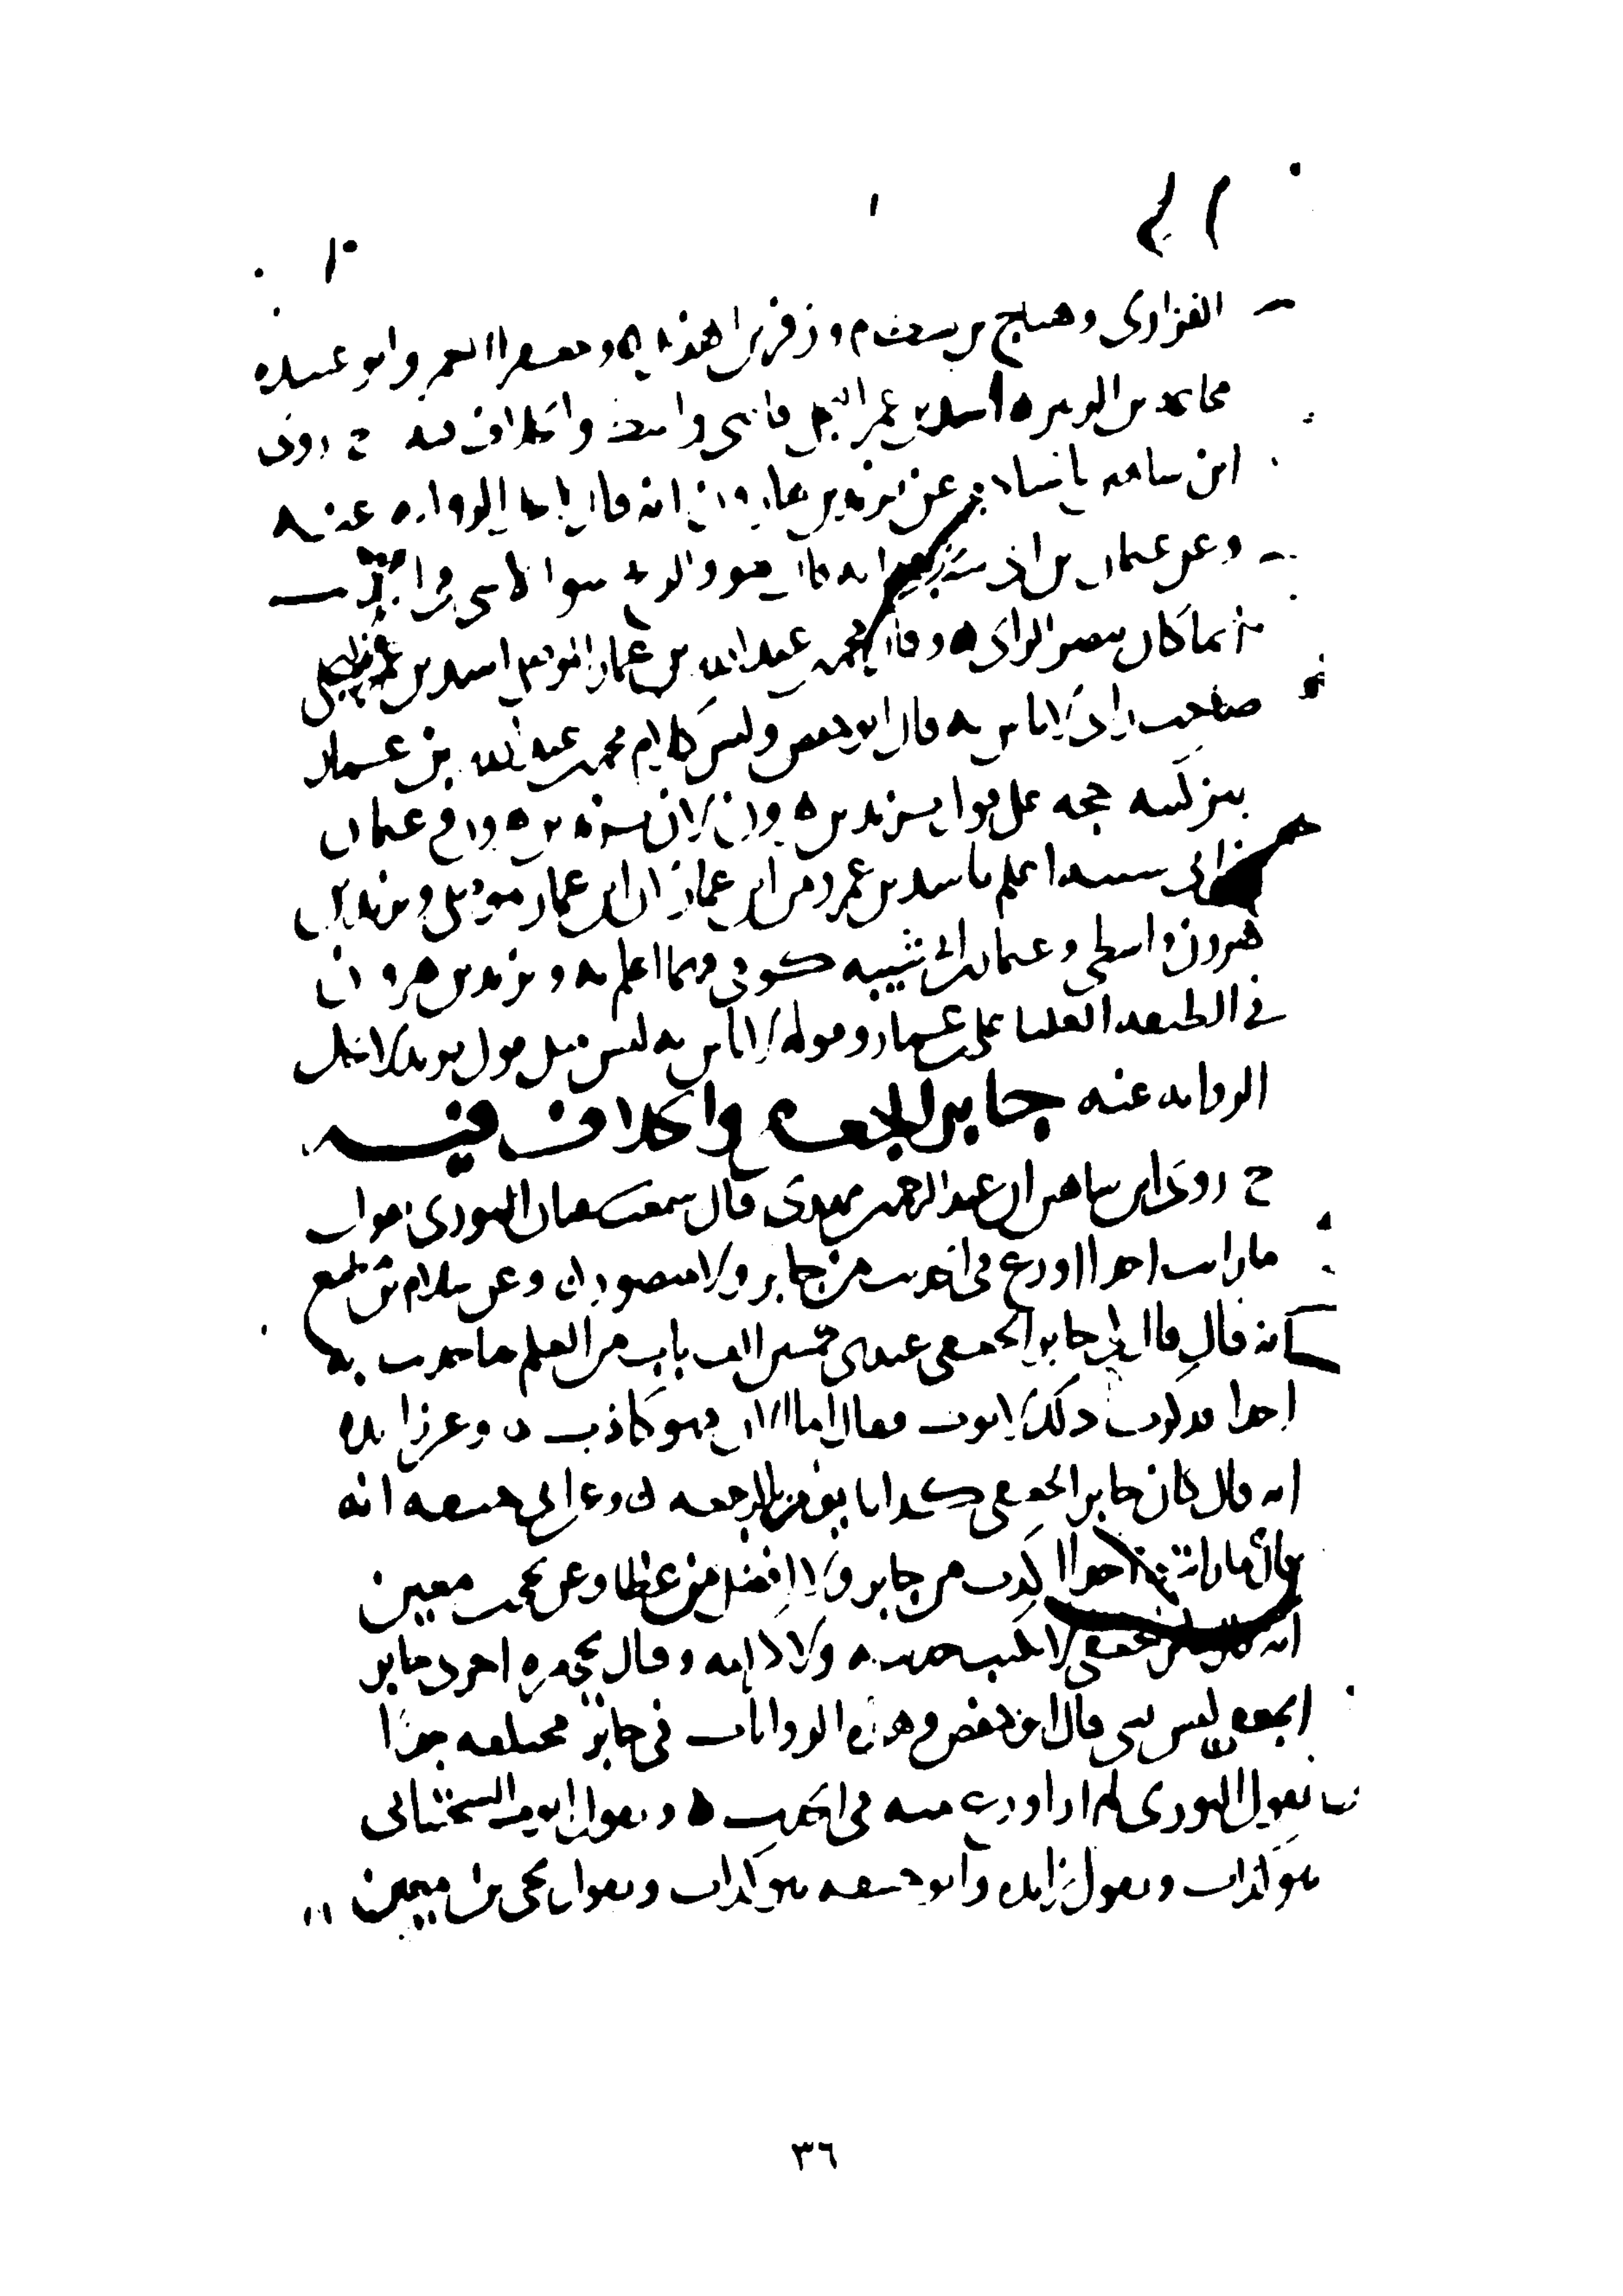 الفزاري وهياج بن بسطام وزفر بن الهذيل ومعمرا العمر وابو عبيده
اسد بن عمر البجلي قاضي واسط والخلاف فيه ح روى
ابن شاهين باسناده عن يزيد بن هارون انه قال لا تحل الروايه عنه
وعن عثمان بن ابي شيبه انه قال هو والريح سوا لا شي في الحديث
انما كان يبصر الراى وقال محمد بن عبد الله بن عمار الموصلي اسد بن عمر البجلي
صاحب راى لا باس به قال ابو حفص وليس كلام محمد بن عبد الله بن عمار
بتزكيته حجه على قول يزيد بن هرون لان يزيد بن هرون مع عثمان
بن ابي شيبه اعلم باسد بن عمرو من ابن عمار لان ابن عمار موصلي ويزيد بن
هرون واسطي وعثمان بن ابي شيبه كوفي وهما اعلم به ويزيد بن هرون
في الطبقه العليا على ابن عمار وقوله لا باس به ليس مثل قول يزيد لا تحل
الروايه عنه جابر الجعفي والخلاف فيه
ح روى ابن شاهين ان عبد الرحمن بن مهدي قال سمعت سفيان الثوري يقول
ما رايت احدا اورع في الحديث من جابر ولا منصور وعن سلام بن ابي مطيع
انه قال قال لي جابر الجعفي عندي خمسين الف باب من العلم ما حدثت به
احدا فذكرت ذلك لايوب فقال اما الان فهو كاذب وعن زايده
انه قال كان جابر الجعفي كذابا يؤمن بالرجعه وعن ابي حنيفه انه
قال ما رايت احدا اكذب من جابر ولا افضل من عطا وعن يحيى بن معين
انه قال الجعفي لا يكتب حديثه ولا كرامه وقال يحيى مره اخرى جابر
الجعفي ليس بشي قال ابو حفص وهذه الروايات في جابر مختلفه جدا
يقول الثوري لم ار اورع منه في الحديث ويقول ايوب السختياني
هو كذاب ويقول زايده وابو حنيفه هو كذاب ويقول يحيى بن معين
٣٦